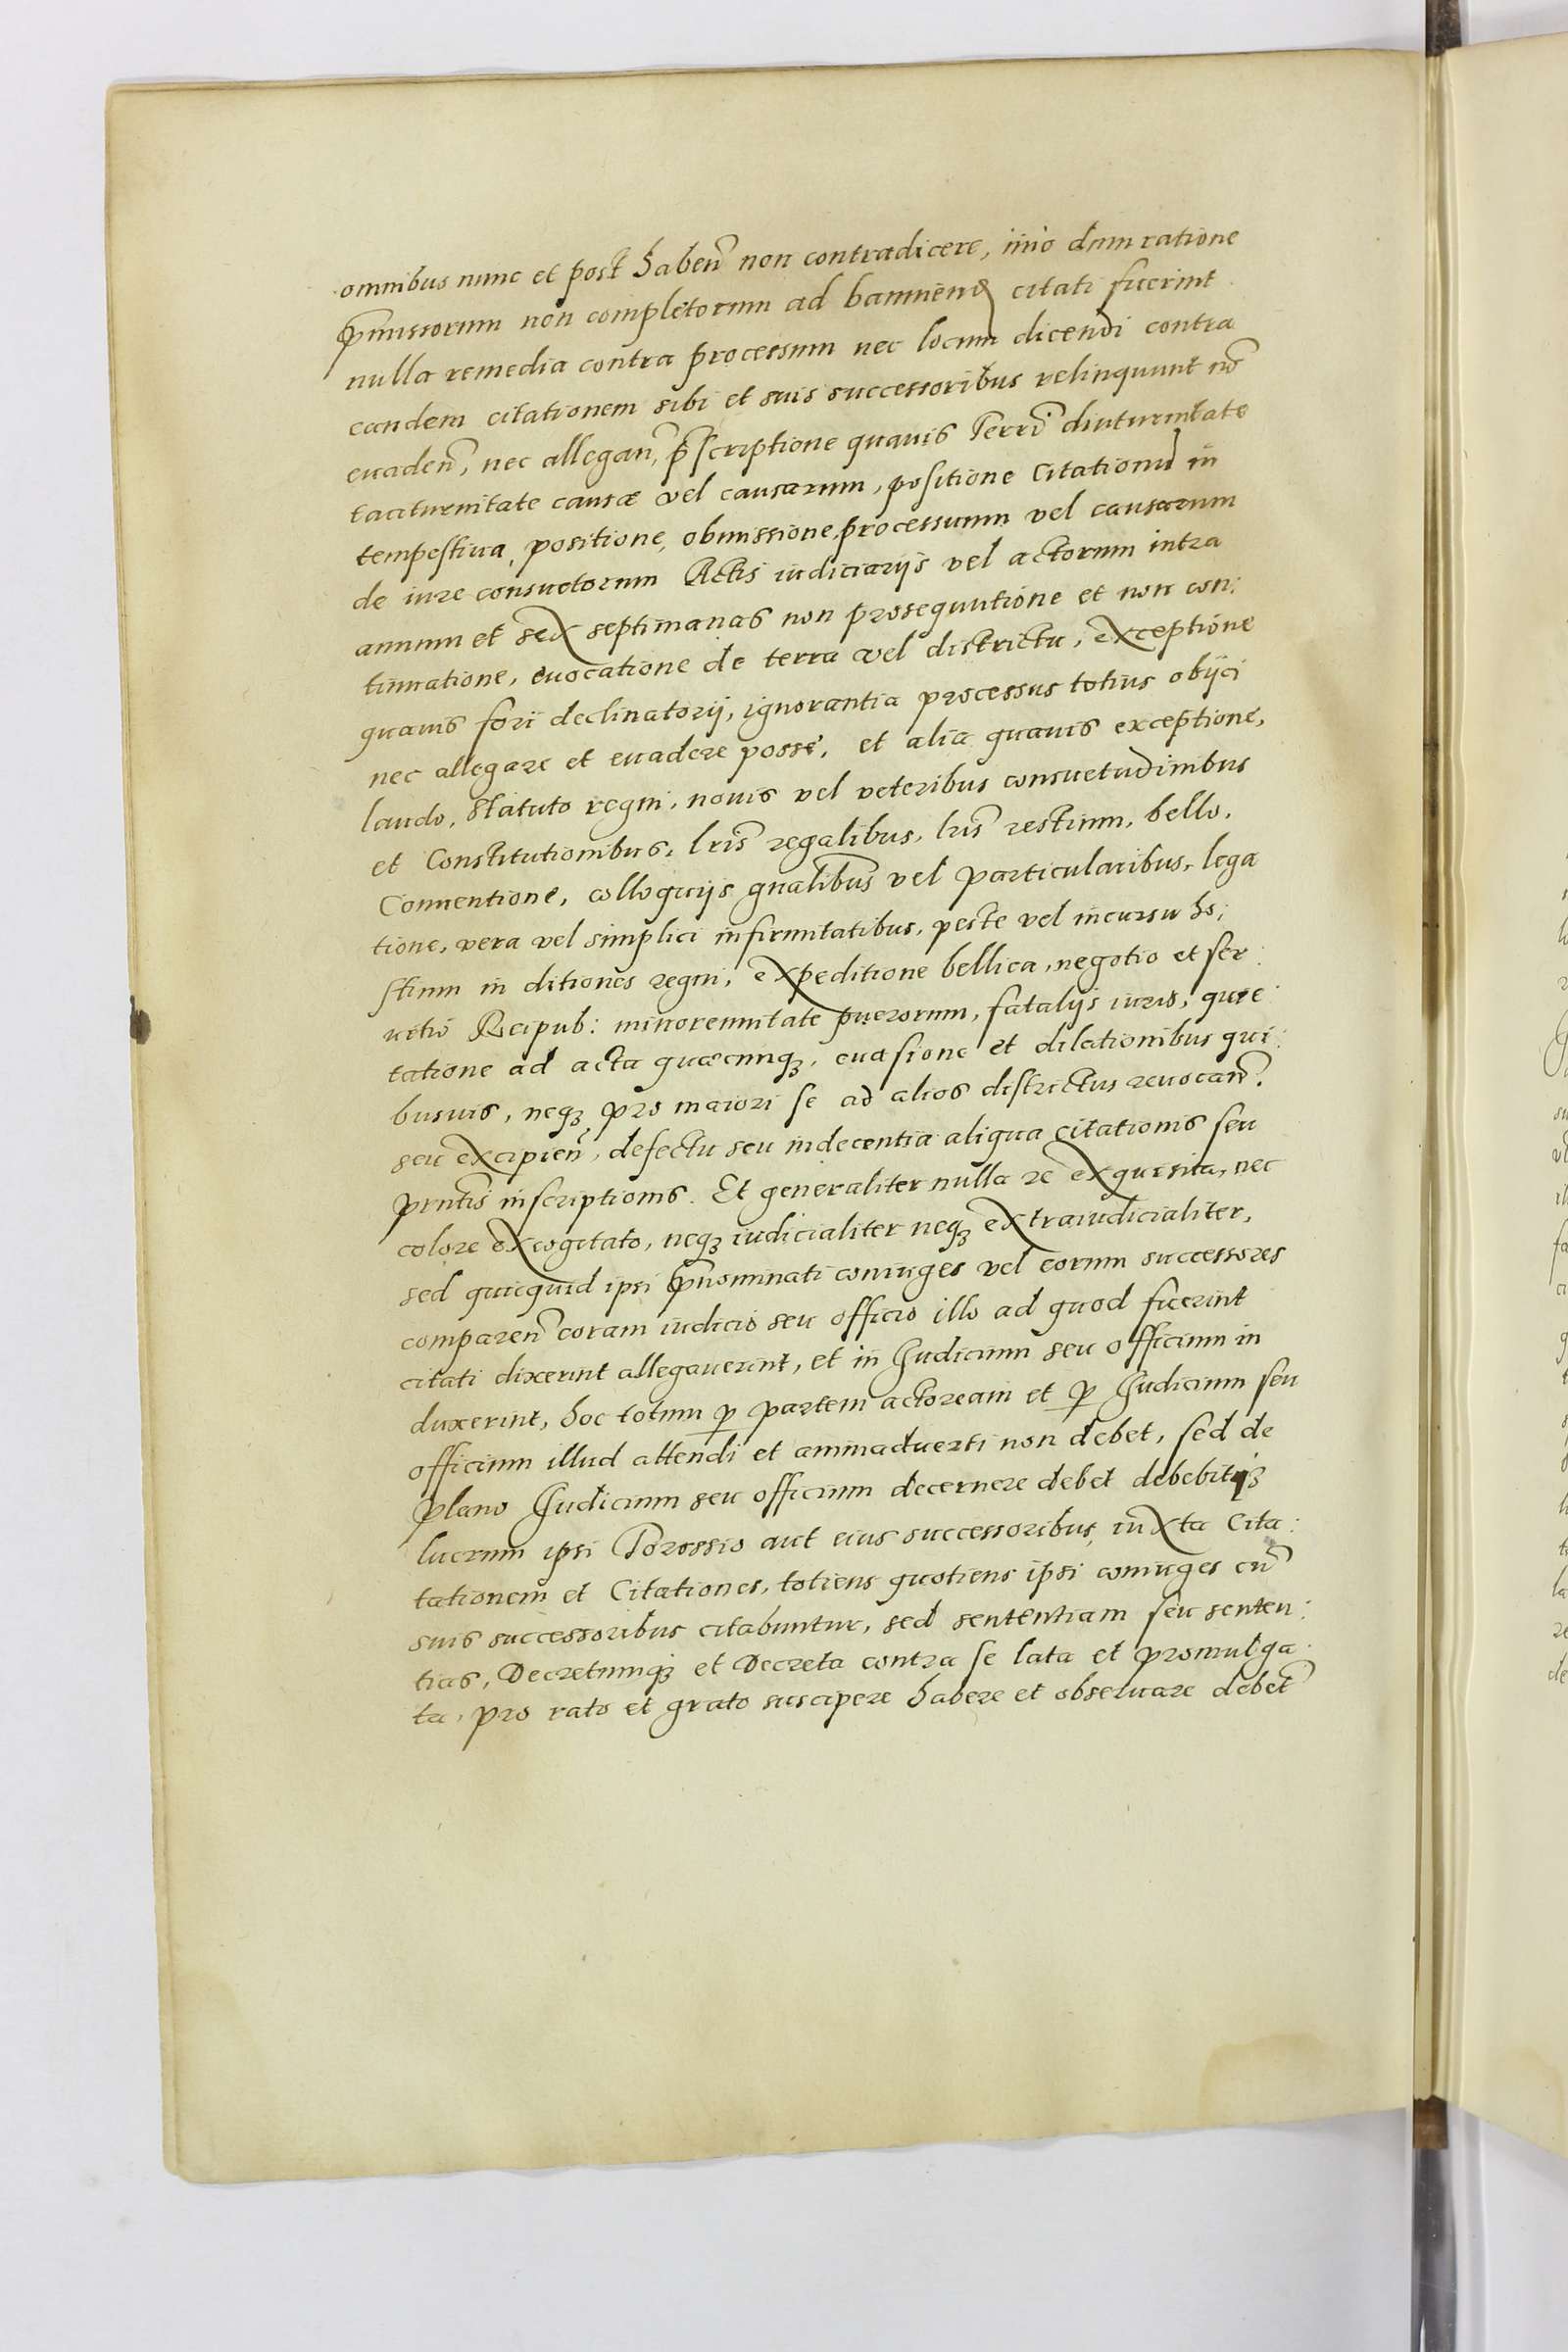 omnibus nunc et post haben̄ non contradicere, im̄o dum ratione
p̄missorum non completorum ad bannien̄d citati fuerint
nulla remedia contra processum nec locum dicendi contra
eandem citationem sibi et suis successoribus relinquunt nō
euaden̄, nec allegan̄, p̄scriptione quauis Terrī diuturnitate
taciturnitate causæ vel causarum, positione Citationū in
tempestiua, positione, obmissione, processuum vel causarum
de iure consuetorum Actis iudiciarijs vel actorum intra
annum et sex septimanas non prosequutione et non con:
tinuatione, euocatione de terra vel districtu, exceptione
quauis fori declinatorij, ignorantia processus totius obijci
nec allegare et euadere posse, et alia quauis exceptione,
laudo, Statuto regni, nouis vel veteribus consuetudinibus
et Constitutionibus, lris̄ regalibus, lris̄ restium, bello,
Conuentione, colloquijs gnalibus̄ vel particularibus, lega
tione, vera vel simplici infirmitatibus, peste vel incursu ho:
stium in ditiones regni, expeditione bellica, negotio et ser:
uitio Reipub: minorennitate puerorum, fatalijs iuris, quie:
tatione ad acta quæcunq3, euasione et dilationibus qui:
busuis, neq3 pro maiori se ad alios districtus reuocan̄.
seu excipien̄, defectu seu indecentia aliqua citationis seu
prntis̄ inscriptionis. Et generaliter nulla re exquisita, nec
colore excogitato, neq3 iudicialiter neq3 extraiudicialiter,
sed quicquid ipsi p̄nominati coniuges vel eorum successores
comparen̄ coram iudicio seu officio illo ad quod fuerint
citati dixerint allegauerint, et in Iudicium seu officium in
duxerint, hoc totum p̲ partem actoream et p̲ Iudicium seu
officium illud attendi et animaduerti non debet, sed de
plano Iudicium seu officium decernere debet debebitq3
lucrum ipsi Porossio aut eius successoribus, iuxta Cita:
tationem et Citationes, totiens quotiens ipsi coniuges cū
suis successoribus citabuntur, sed sententiam seu senten:
tias, Decretumq3 et Decreta contra se lata et promulga
ta, pro rato et grato suscipere habere et obseruare debet̄